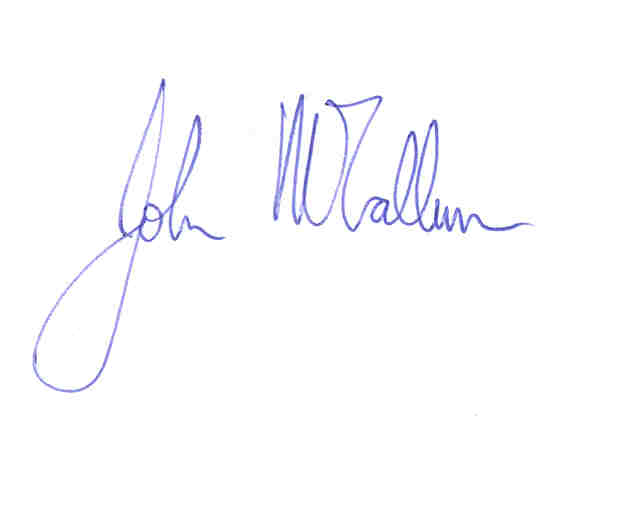 John McCallum